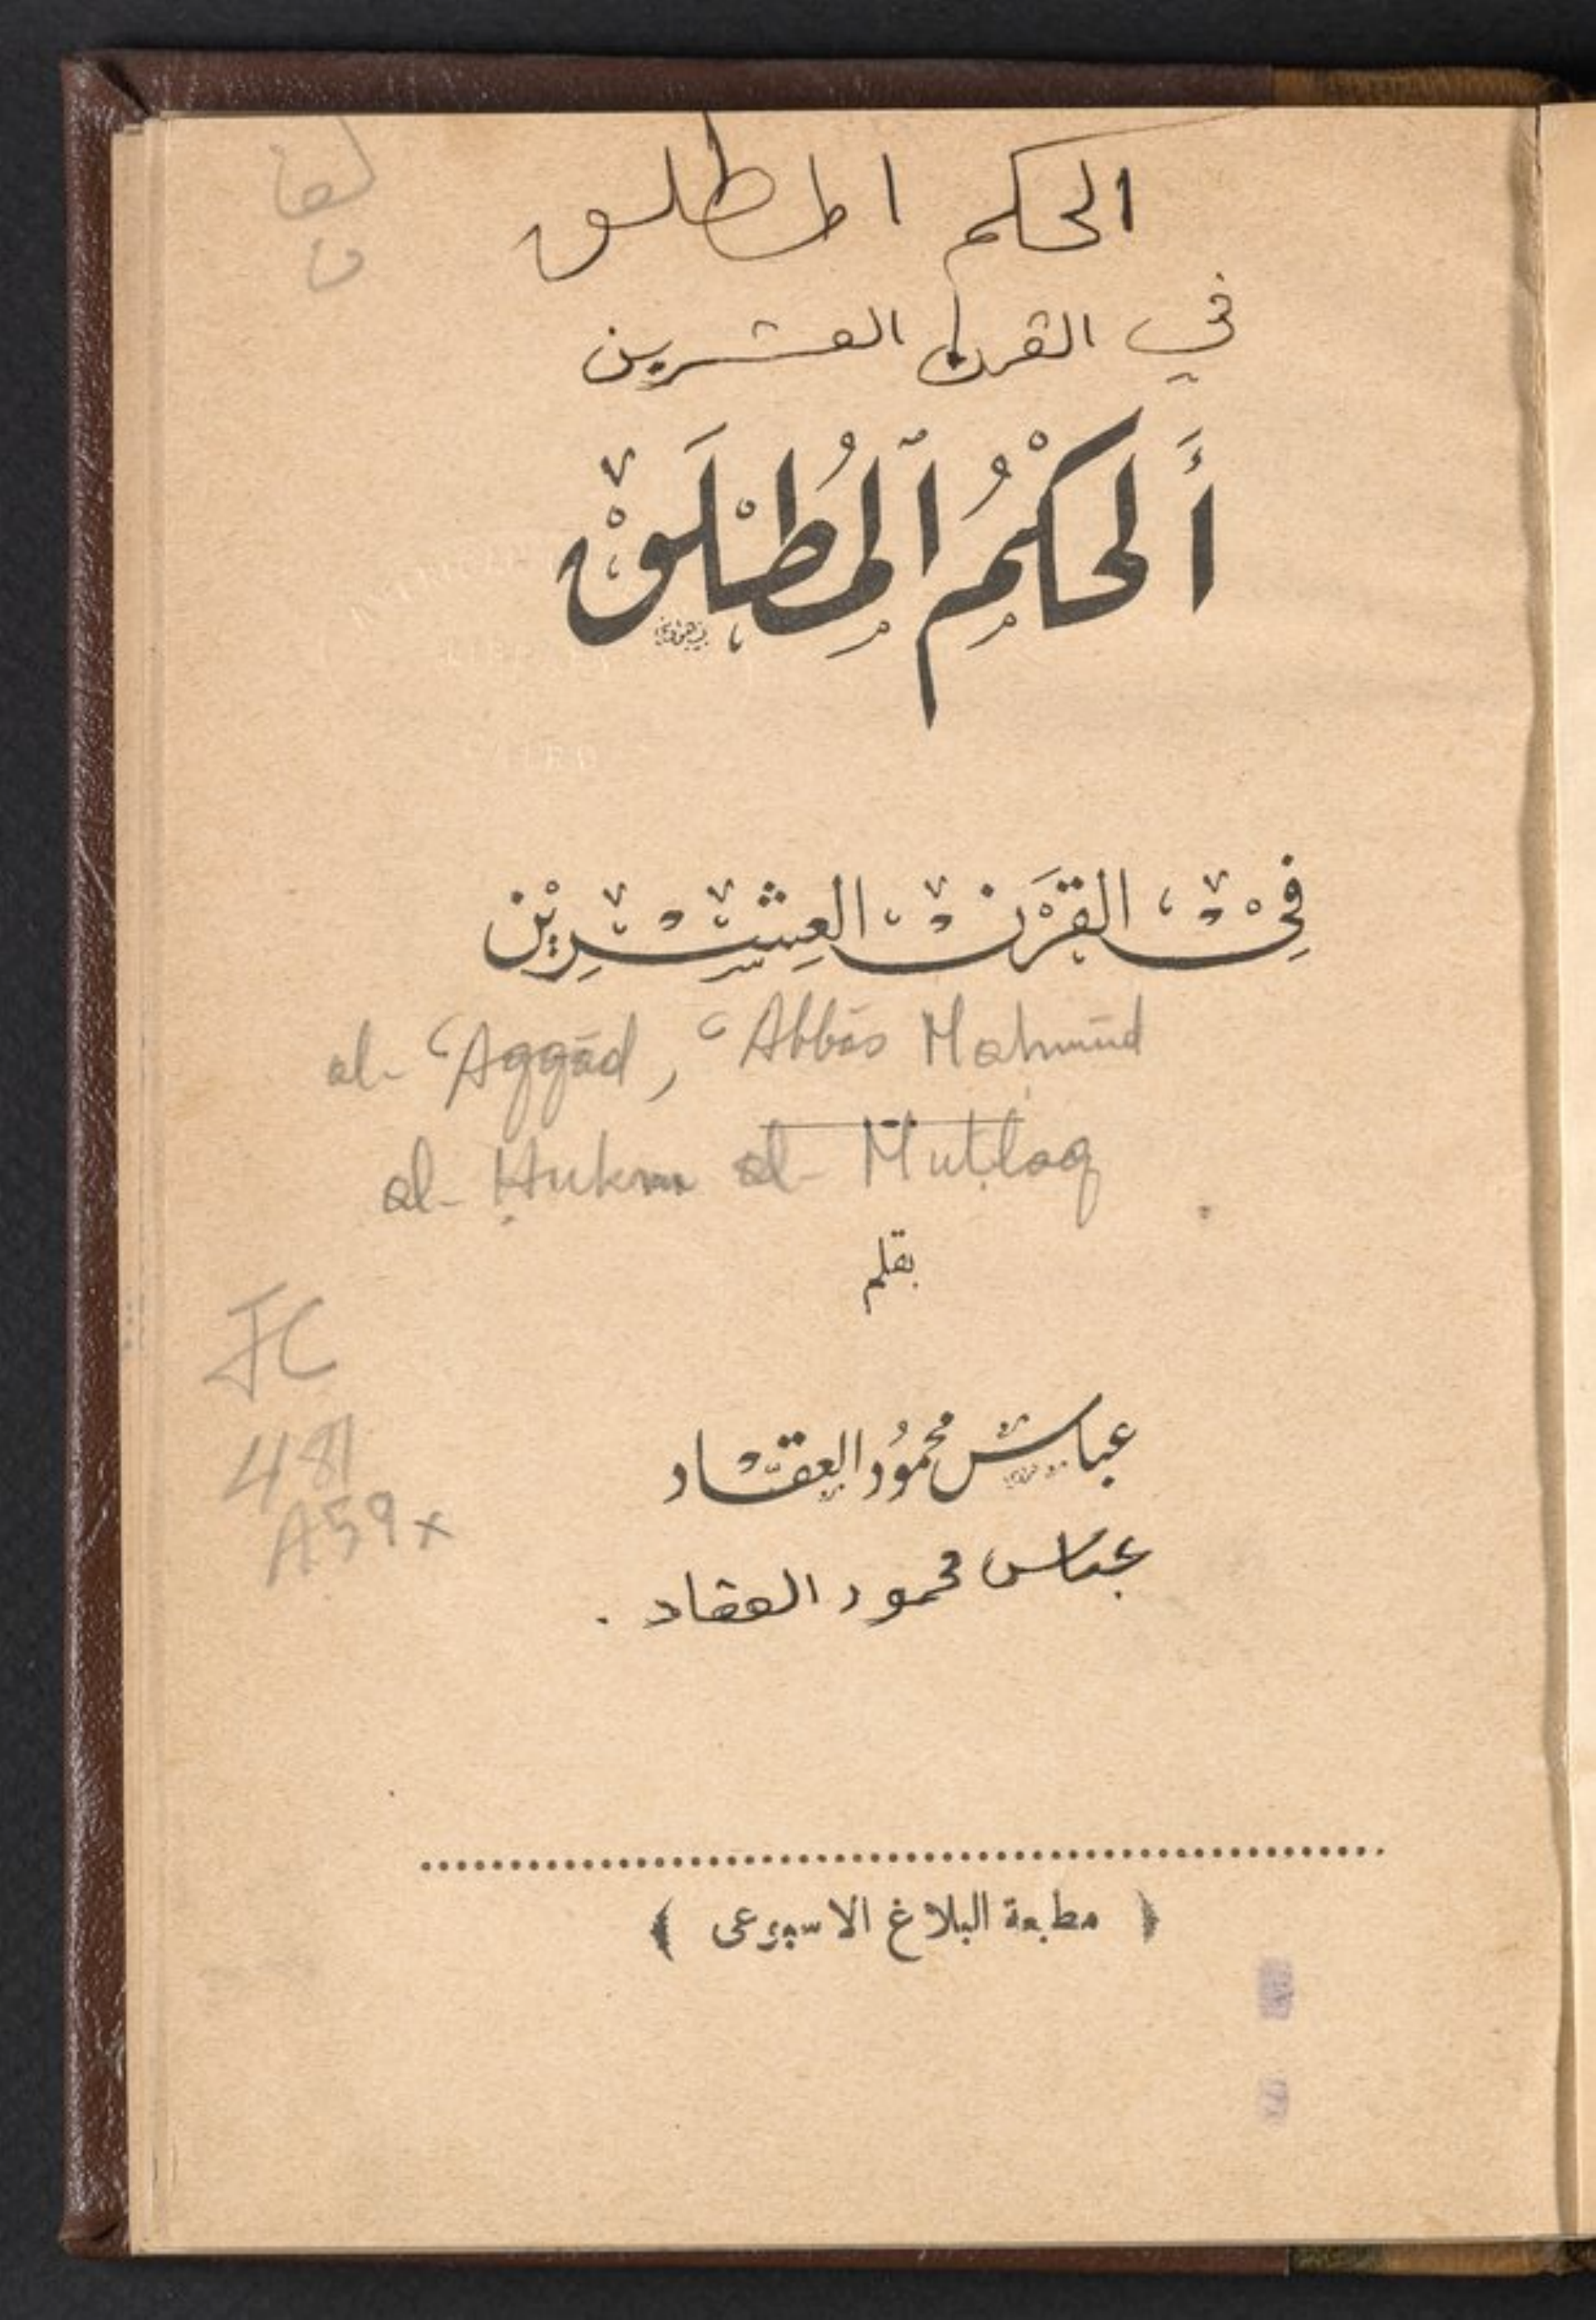 الحكم المطلق
في القرن العشرين
أَلحُكْمُ ٱلمُطْلَقْ
فِيْ القَرْنْ العِشْرِيْن
al- ʿAqqād, ʿAbbās Maḥmūd
al- Ḥukm al- Muṭlaq
بقلم
JC
481
A59x
عباس محمُود العقاد
عباس محمود العقاد .
﴿ مطبعة البلاغ الاسبوعى ﴾